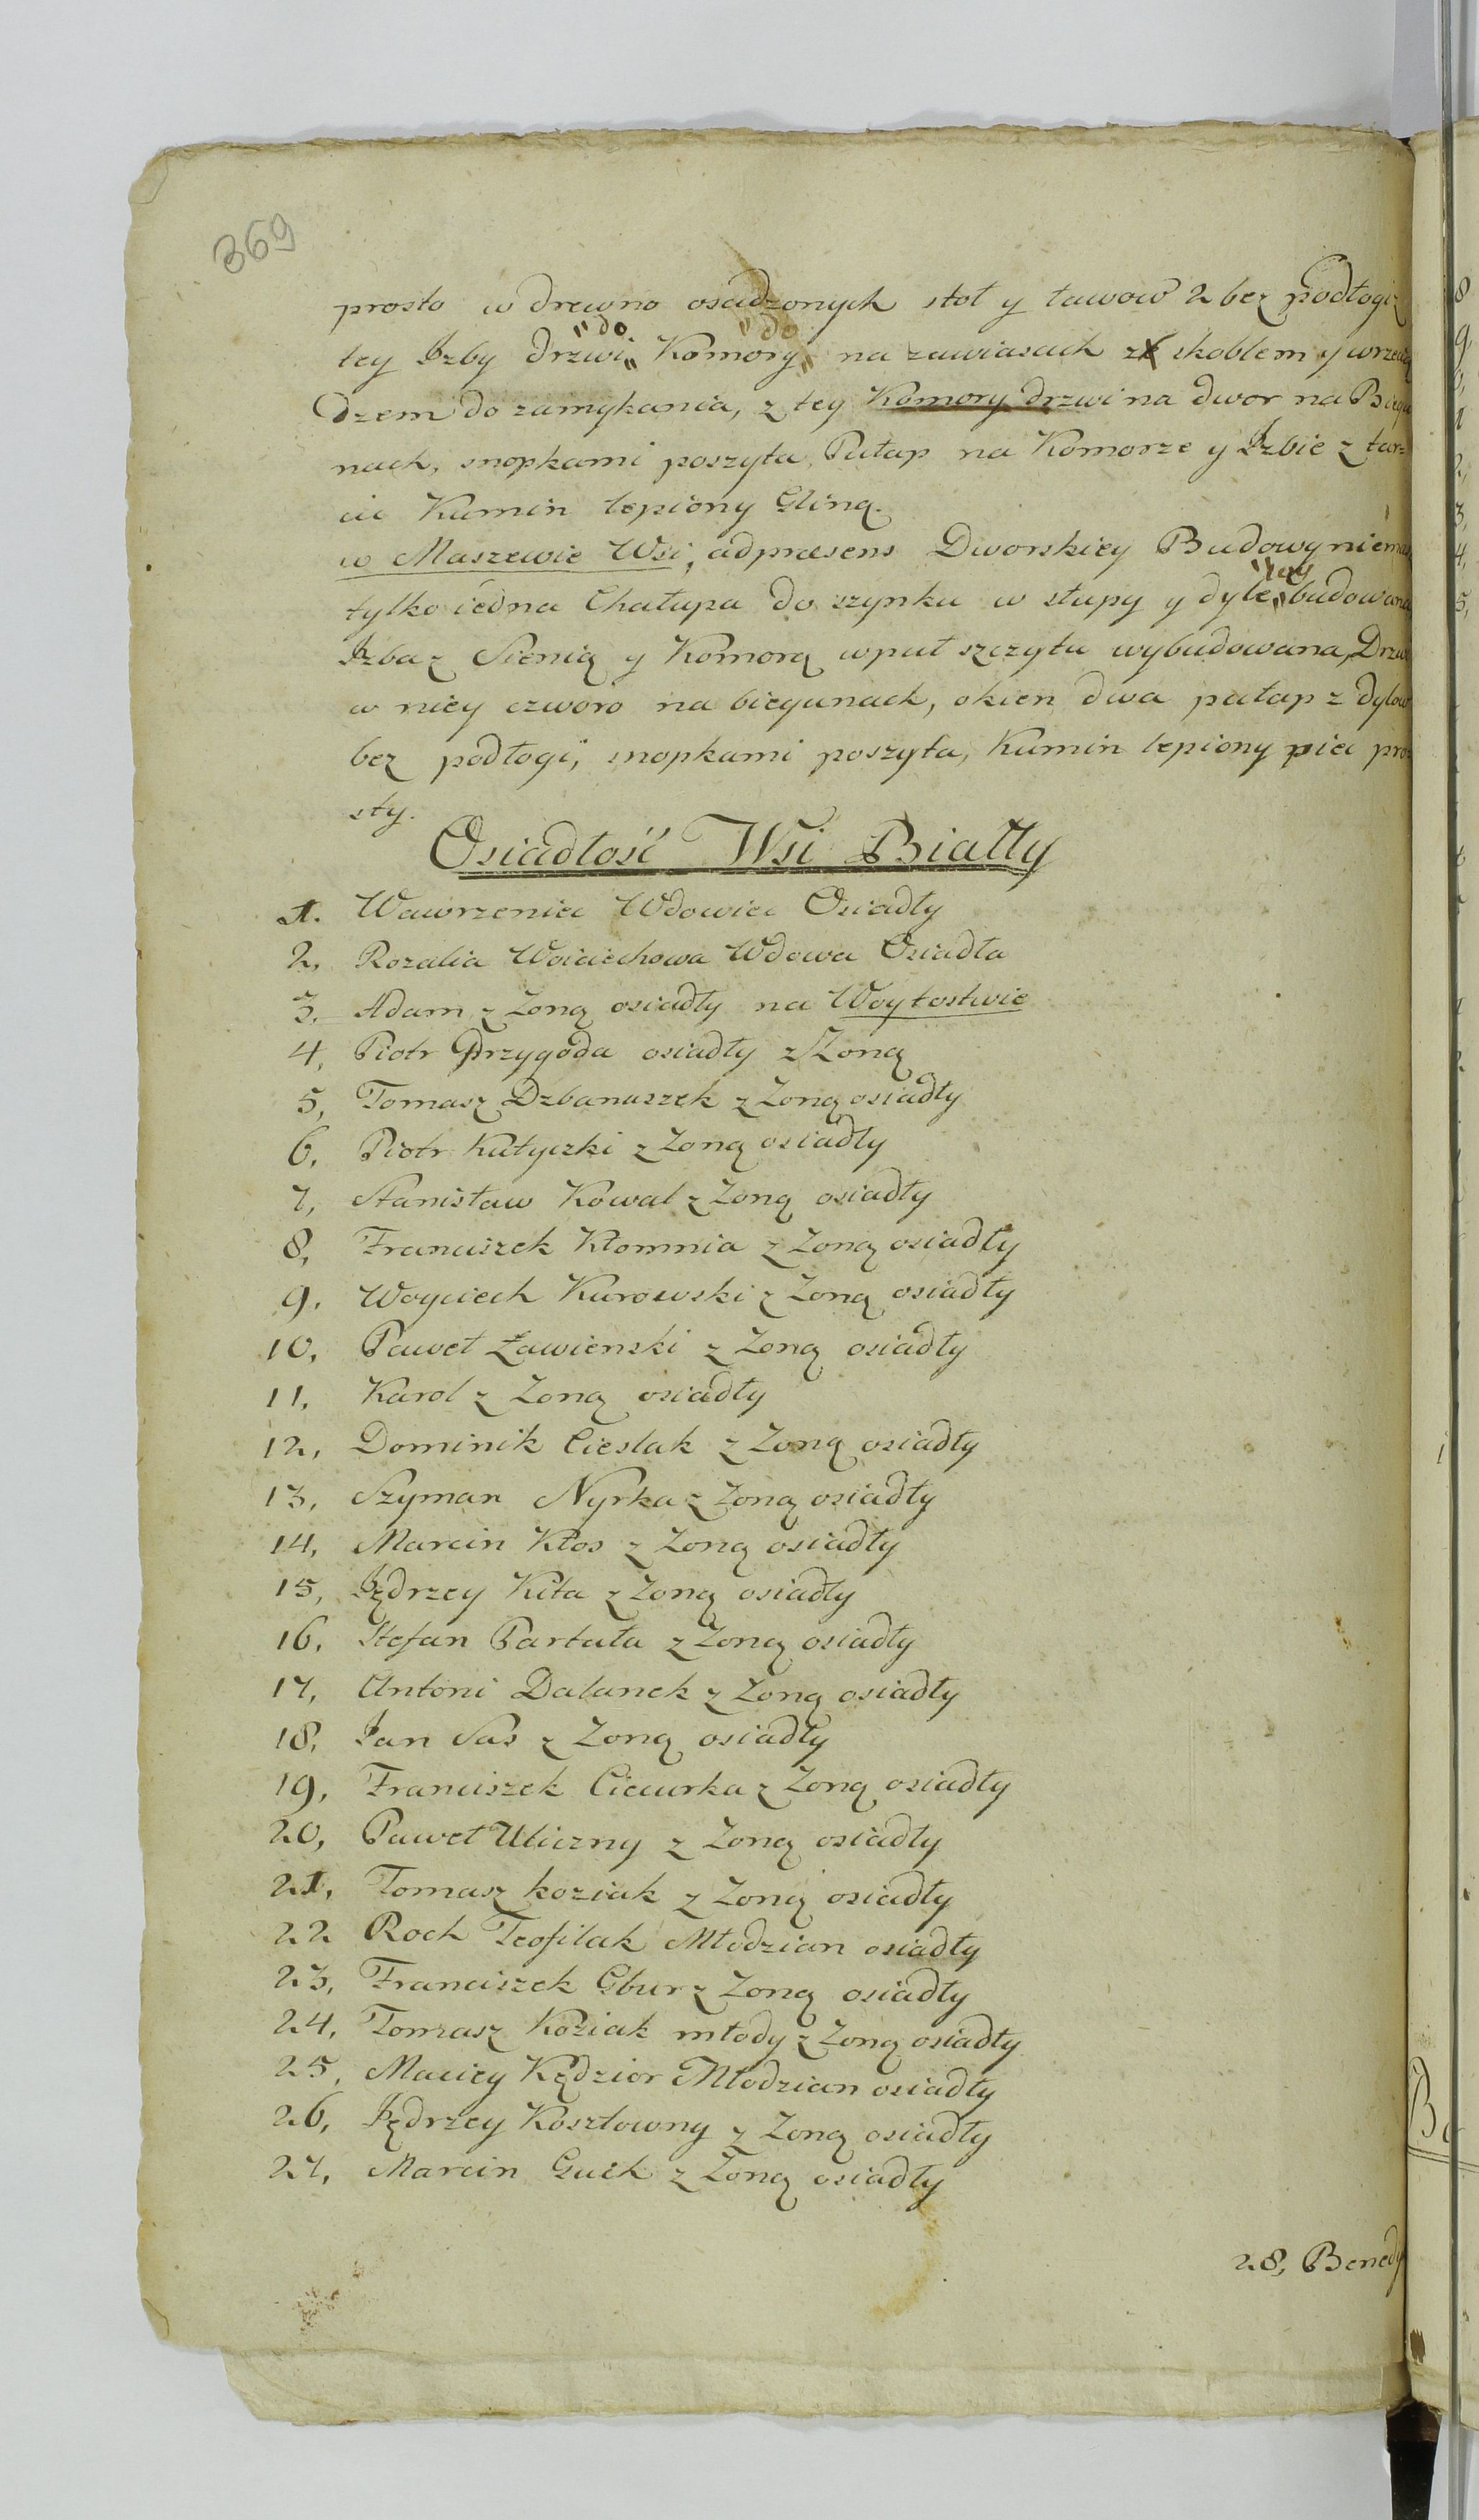 369
prosto w drewno osadzonych stoł y ławow 2 bez podłogi z
tey Jzby drzwi „do„ Komory „do„ na zawiasach z skoblem y wrzecią
dzem do zamykania, z tey Komory drzwi na dwor na Biegu
nach, snopkami poszyta, Pułap na Komorze y Jzbie z tar=
cic Kamin lepiony Gliną.
w Maszewie Wsi, adpraesens Dworskiey Budowy niemasz
tylko iedna Chałupa do szynku w słupy y dyle budowana
Jzba z Sienią y Komorą wpuł szczytu wybudowana, Drzwi
w niey czworo na biegunach, okien dwa pułap z dylow
bez podłogi, snopkami poszyta, Kamin lepiony piec pro=
sty.
Osiadłość Wsi Białły
1. Wawrzeniec Wdowiec Osiadły
2, Rozalia Woiciechowa Wdowa Osiadła
3. Adam z Zoną osiadły na Woytostwie
4, Piotr Przygoda osiadły z Zoną
5, Tomasz Dzbanuszek z Zoną osiadły
6, Piotr Kutyczki z Zoną osiadły
7, Stanisław Kowal z Zoną osiadły
8, Franciszek Kłomnia z Zoną osiadły
9, Woyciech Kurowski z Zoną osiadły
10, Paweł Ławienski z Zoną osiadły
11, Karol z Zoną osiadły
12, Dominik Cieslak z Zoną osiadły
13, Szyman Nyrka z Zoną osiadły
14, Marcin Kłos z Zoną osiadły
15, Jędrzey Kita z Zoną osiadły
16, Stefan Partała z Zoną osiadły
17, Antoni Dalanek z Zoną osiadły
18, Jan Sas z Zoną osiadły
19, Franciszek Ciecurka z Zoną osiadły
20, Paweł Uliczny z Zoną osiadły
21, Tomasz koziak z Zoną osiadły
22 Roch Teofilak Młodzian osiadły
23, Franciszek Gbur z Zoną osiadły
24, Tomasz Koziak młody z Zoną osiadły
25, Maciey Kędzior Młodzian osiadły
26, Jędrzey Kosztowny z Zoną osiadły
27, Marcin Guik z Zoną osiadły
28, Benedy